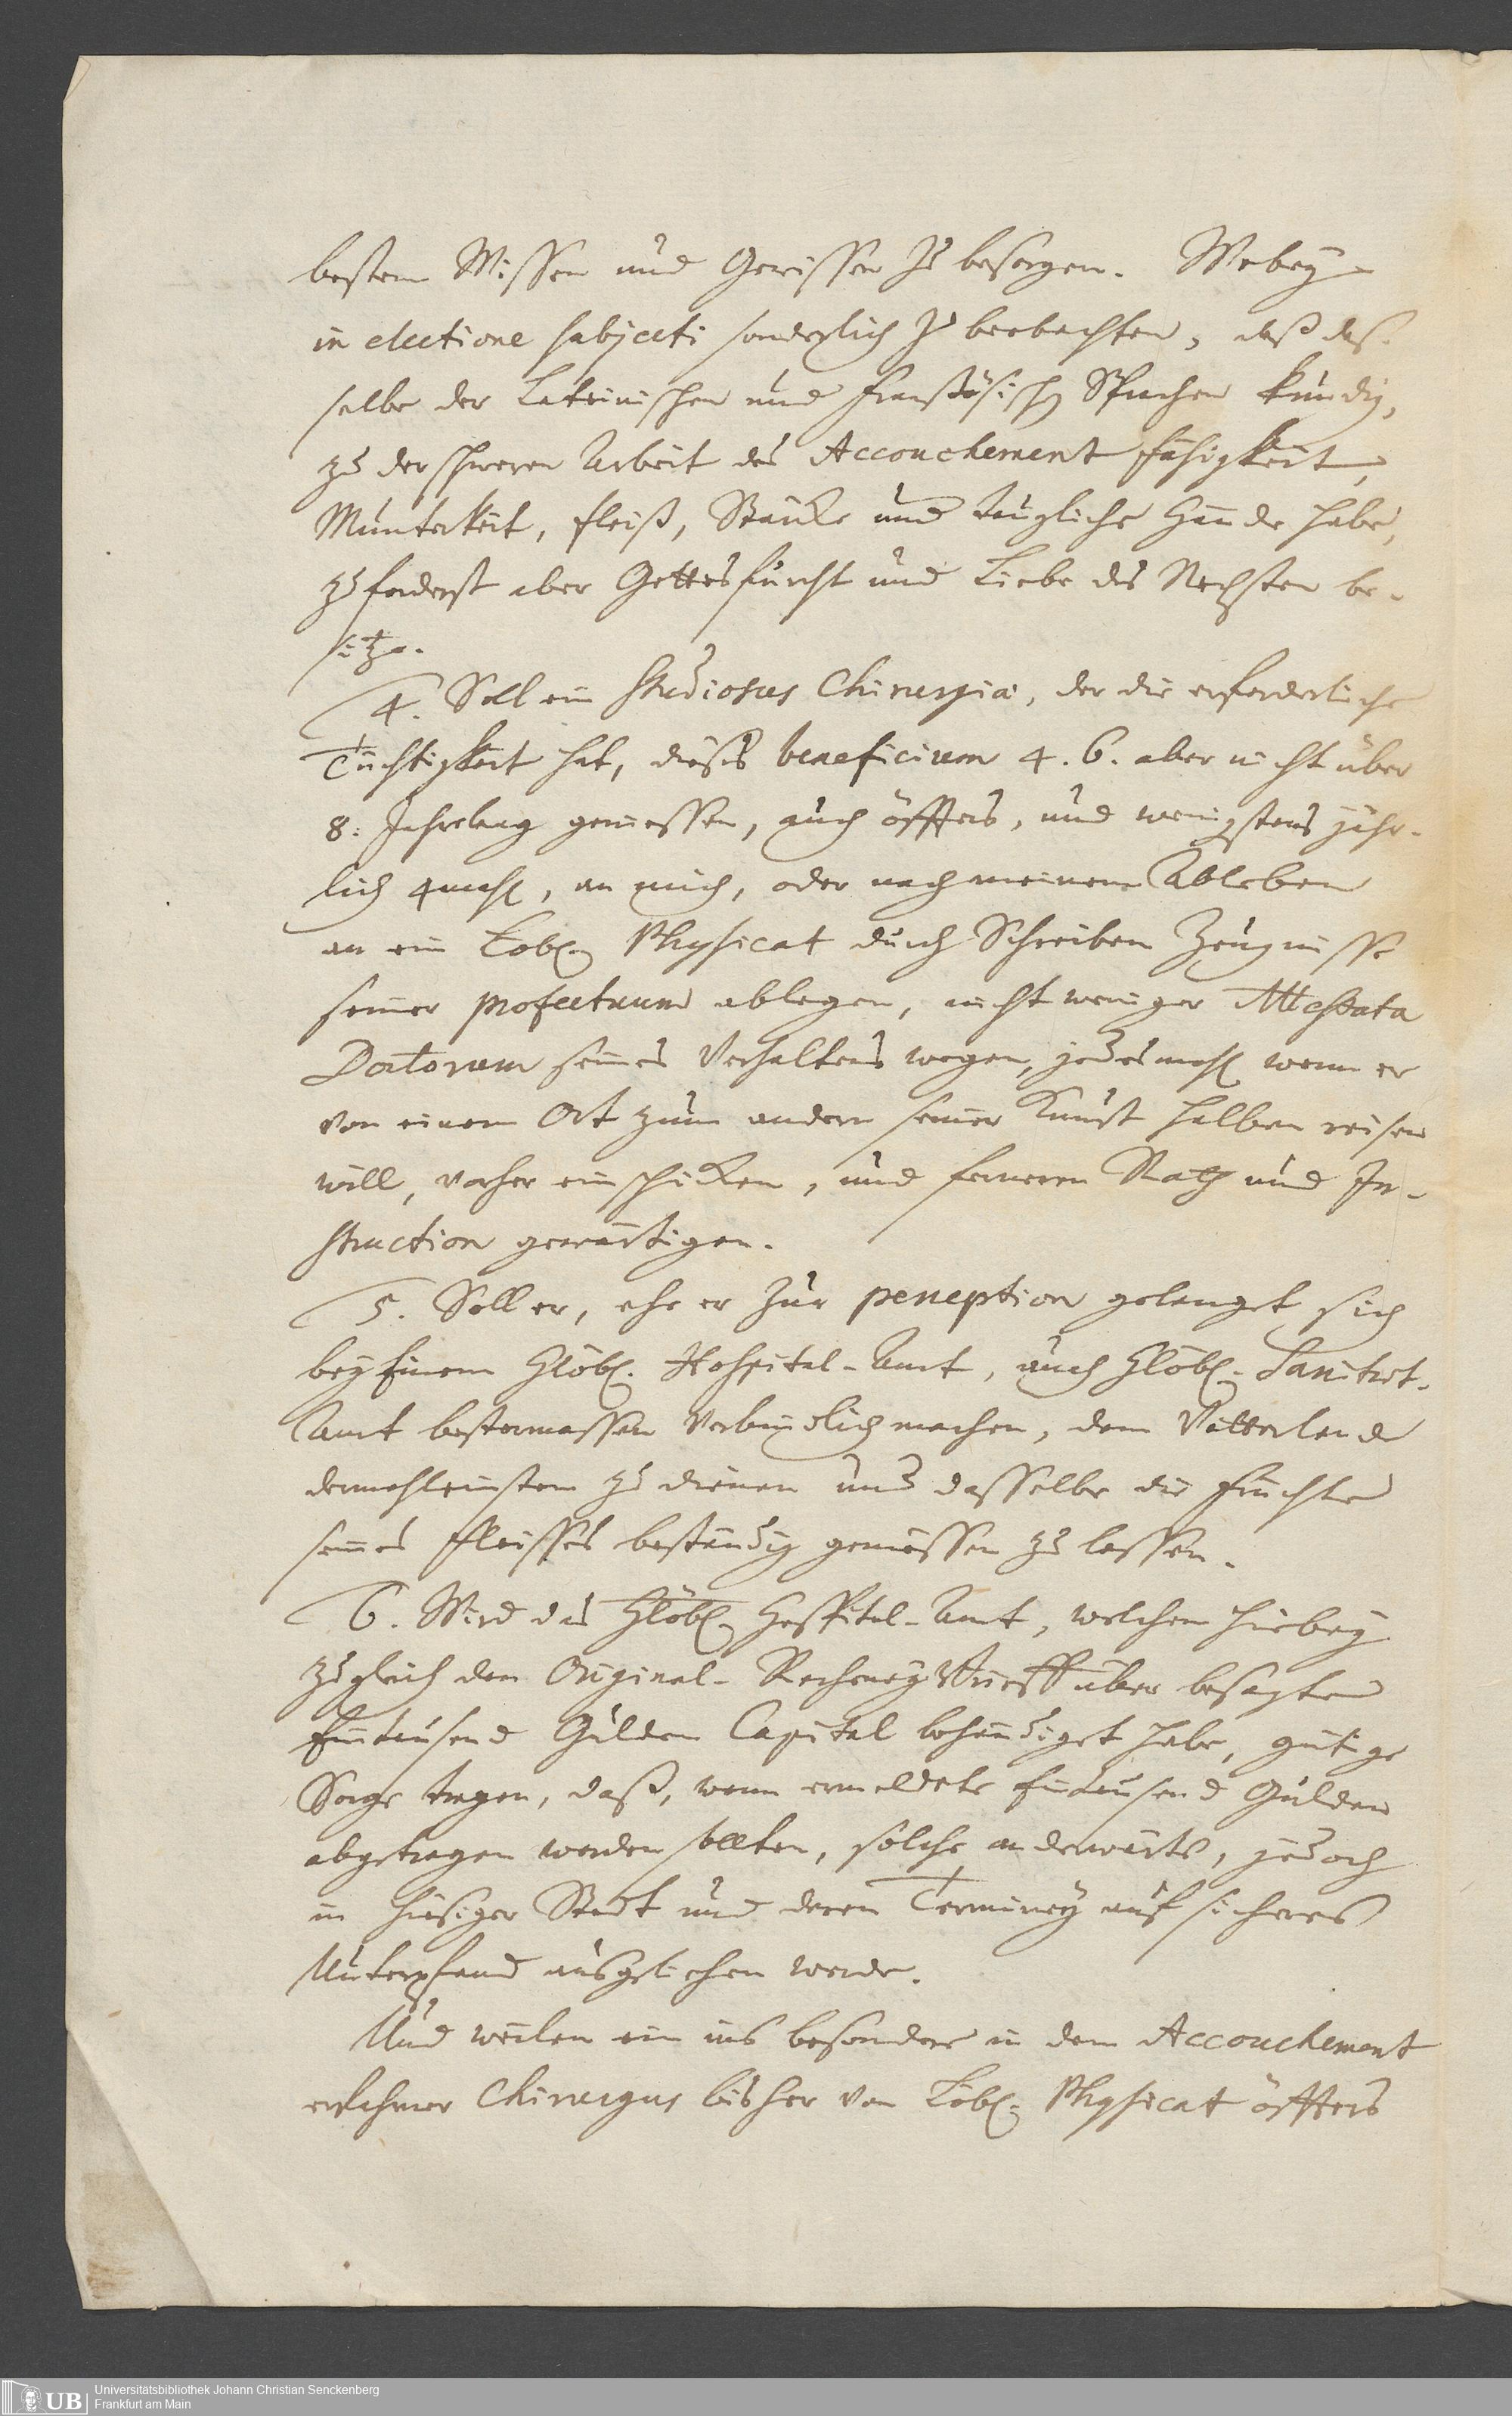 bestem Wissen und Gewissen zu besorgen. Wobey
in electione subjecti sonderlich zu beobachten, daß das-
selbe der Lateinischen und Frantzösischen Sprachen kundig,
zu der schweren Arbeit des Accouchement Fähigkeit,
Munterkeit, Fleiß, Stärcke und taugliche Hände habe,
zuforderst aber Gottesfurcht und Liebe des Nechsten be-
sitze.
4. Soll ein Studiosus Chirurgiæ, der die erforderliche
Tüchtigkeit hat, dieses beneficium 4. 6. aber nicht über
8: Jahrelang geniessen, auch öffters, und wenigstens jähr-
lich 4mahl, an mich, oder nach meinem Ableben
an ein Löbl. Physicat durch Schreiben Zeugnisse
seiner profectuum ablegen, nicht weniger Attestata
Doctorum seines Verhaltens wegen, jedesmahl wenn er
von einem Ort zum andern seiner Kunst halben reisen
will, vorher einschicken, und ferneren Rath und In-
struction gewärtigen.
5. Soll er, ehe er zur perception gelanget, sich
bey Einem Hlöbl. Hospital-Amt, auch Hlöbl. Sanitæt-
Amt bestermassen verbindlich machen, dem Vatterlande
dermahleinsten zu dienen und dasselbe die Früchte
seines Fleisses beständig geniessen zu lassen.
6. Wird das Hlöbl. Hospital-Amt, welchem hiebey
zugleich den Original-Rechney Brieff über besagten
Eintausend Gulden Capital behändiget habe, gütige
Sorge tragen, daß, wenn ermeldete Eintausend Gulden
abgetragen werden sollten, solche anderwärts, jedoch
in hiesiger Stadt und deren Terminey auf sicheres
Unterpfand ausgeliehen werde.
Und weilen ein ins besondere in dem Accouchement
erfahrner Chirurgus bisher von Löbl. Physicat öffters
Universitätsbibliothek Johann Christian Senckenberg
Frankfurt am Main
UB